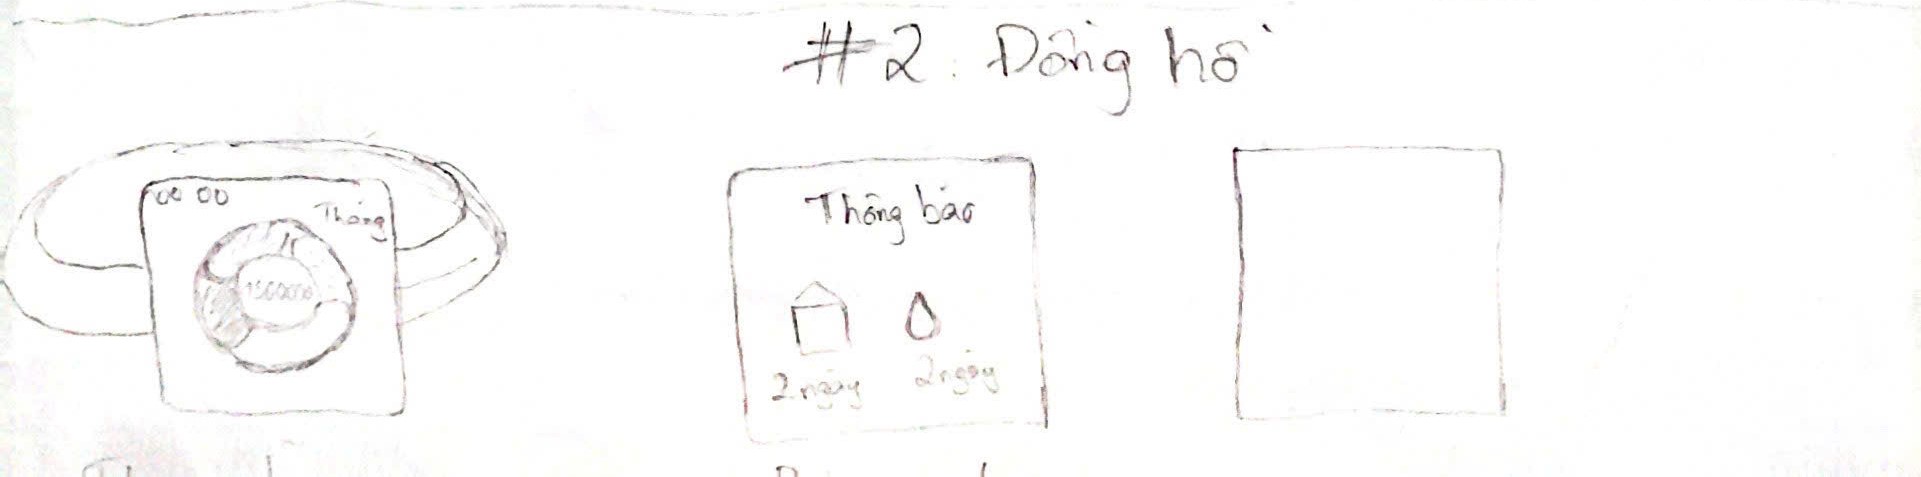 #2: Đồng hồ
00 00
Tháng
1500000
Thông báo
2 ngày
2 ngày